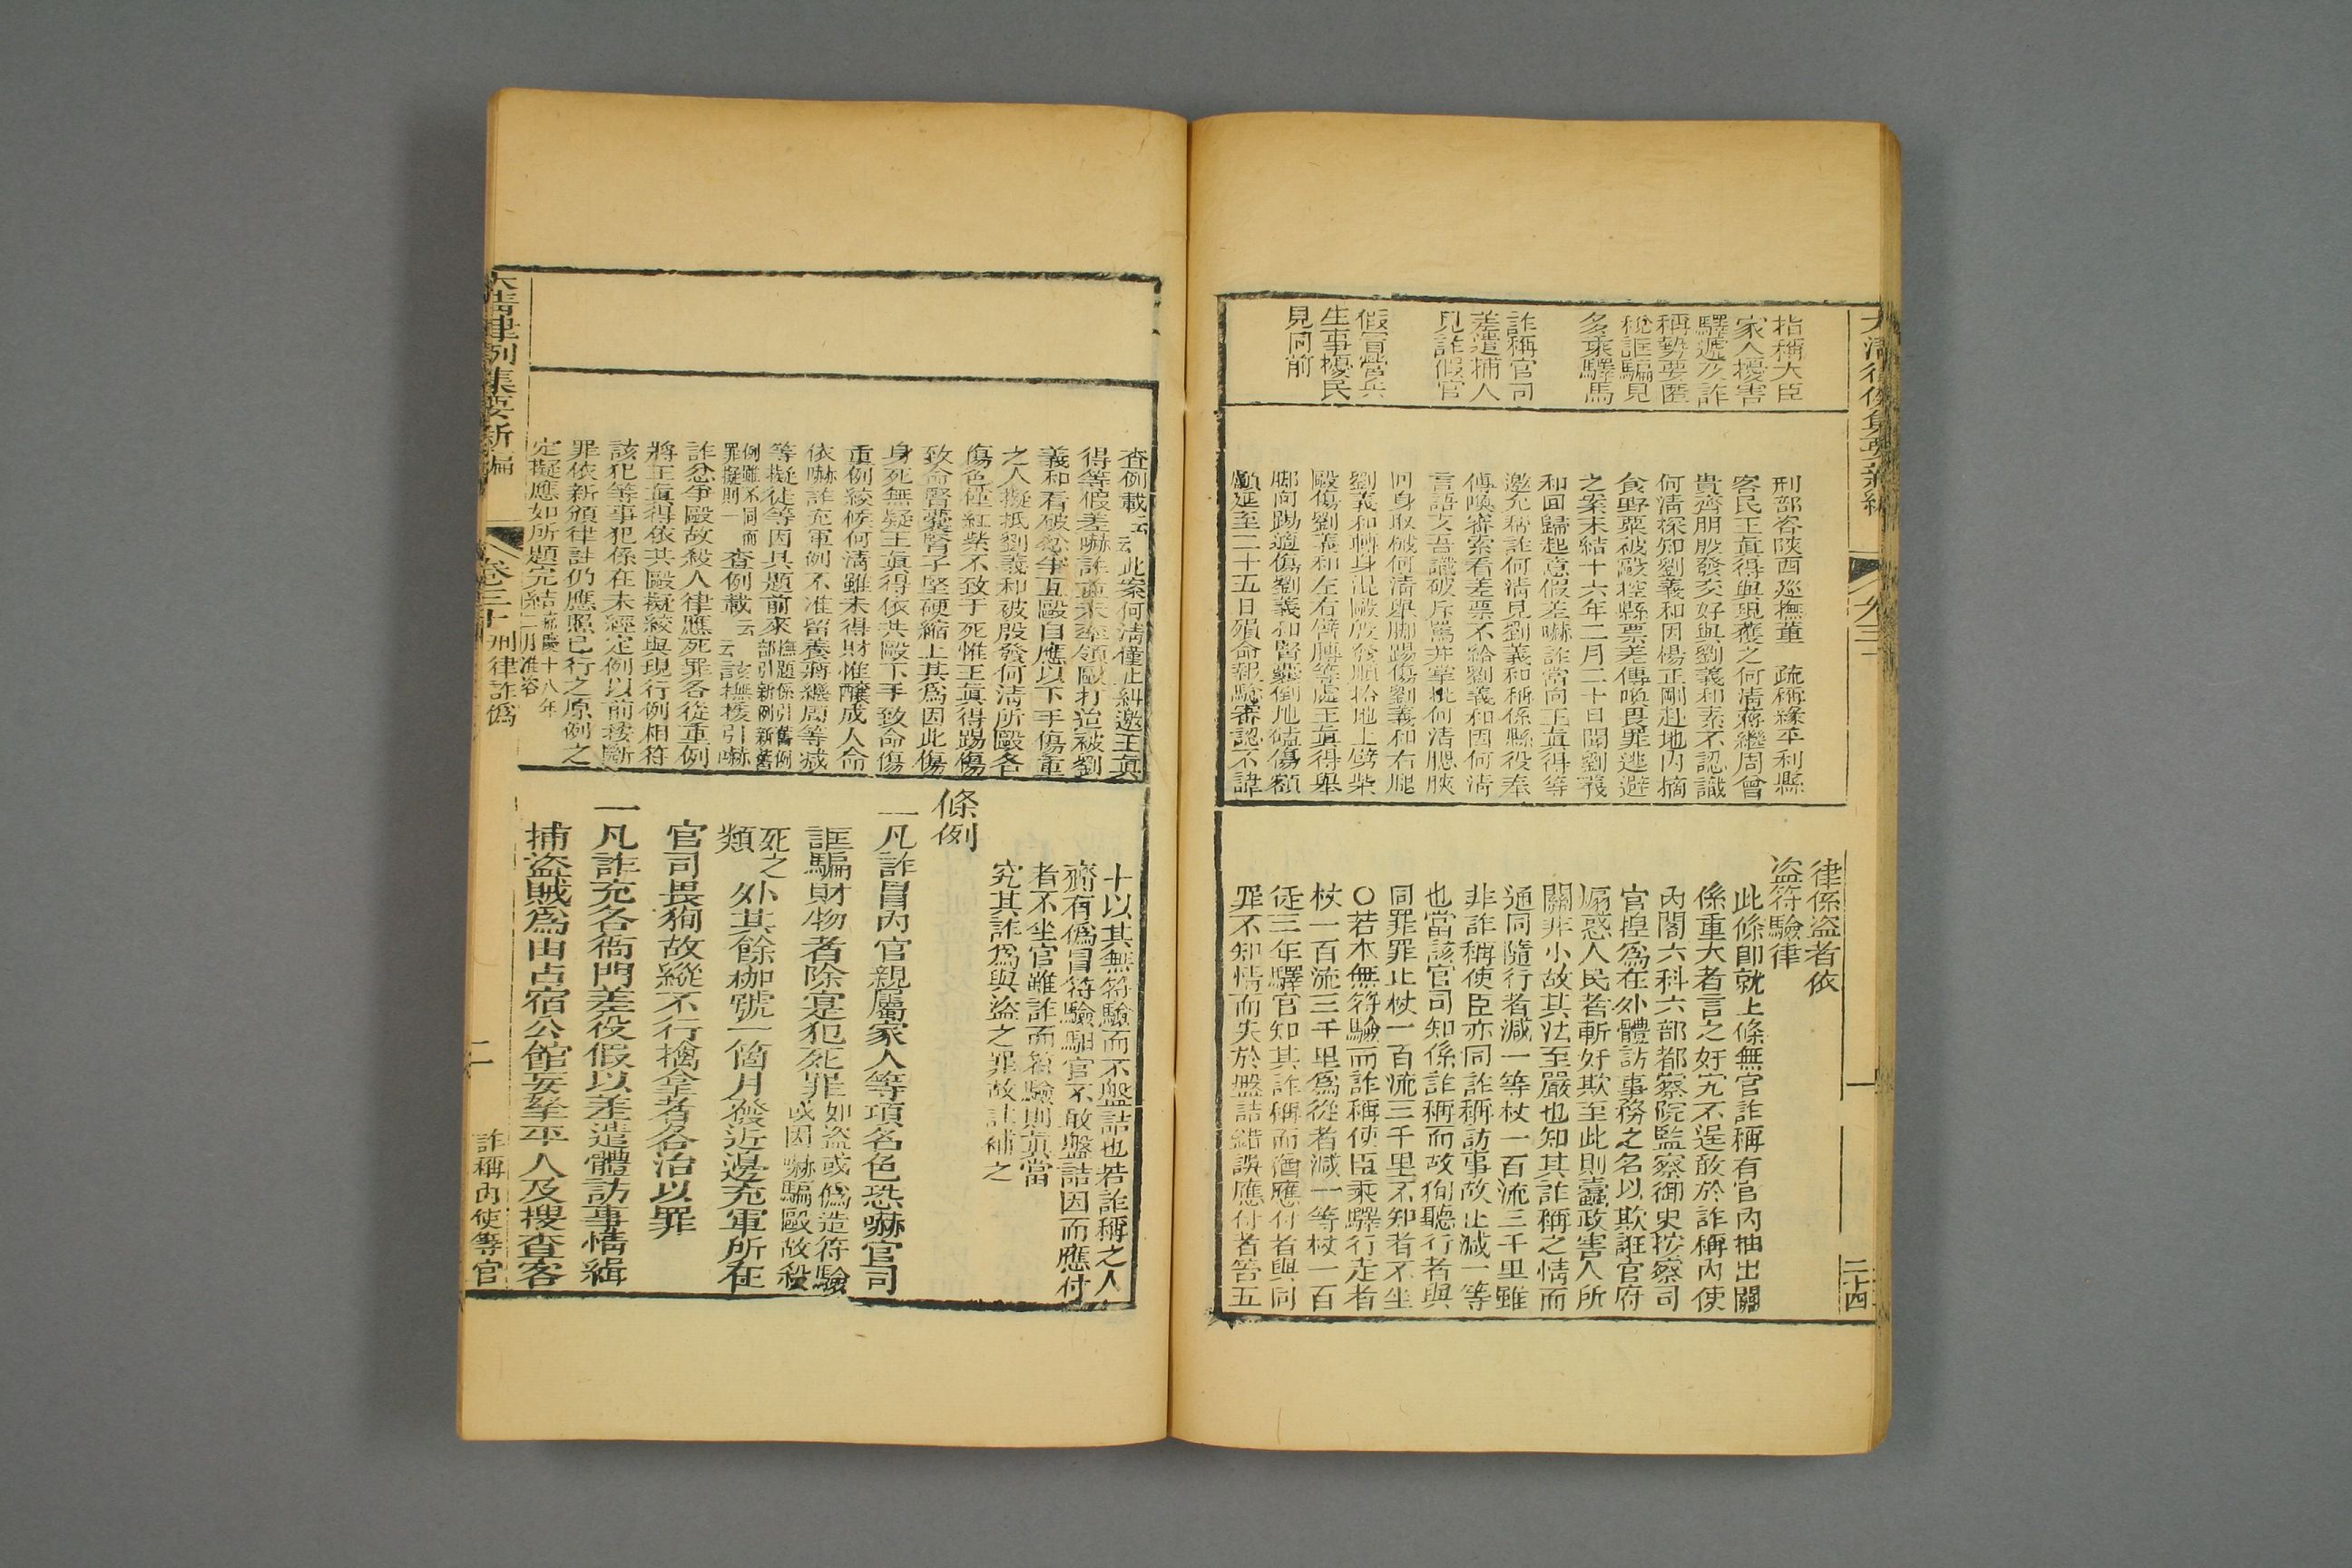 大清律例集要新編
卷三十
二十四
指稱大臣
家人擾害
驛遞及詐
稱勢要匿
稅誆騙見
多乘驛馬
詐稱官司
差遣捕人
見詐假官
假冒營兵
生事擾民
見同前
刑部咨陝西巡撫董 疏稱緣平利縣
客民王眞得與現獲之何淸蔣繼周曾
貴齊朋殷發交好與劉義和素不認識
何淸探知劉義和因楊正剛赴地內摘
食野粟被毆控縣票差傳喚畏罪逃避
之案未結十六年二月二十日聞劉義
和回歸起意假差嚇詐當向王眞得等
邀允稱詐何淸見劉義和稱係縣役奉
傳喚審索看差票不給劉義和因何淸
言語支吾識破斥罵并掌批何淸腮脥
回身取械何淸舉脚踢傷劉義和右腿
劉義和轉身混毆殷發順拾地上劈柴
毆傷劉義和左右臂膊等處王眞得舉
脚向踢適傷劉義和腎囊倒地磕傷額
顱延至二十五日殞命報驗審認不諱
律係盜者依
盜符驗律
此條卽就上條無官詐稱有官內抽出關
係重大者言之奸宄不逞敢於詐稱內使
內閣六科六部都察院監察御史按察司
官揑爲在外體訪事務之名以欺誑官府
煽惑人民者斬奸欺至此則蠹政害人所
關非小故其法至嚴也知其詐稱之情而
通同隨行者減一等杖一百流三千里雖
非詐稱使臣亦同詐稱訪事故止減一等
也當該官司知係詐稱而故狥聽行者與
同罪罪止杖一百流三千里不知者不坐
○若本無符驗而詐稱使臣乘驛行走者
杖一百流三千里爲從者減一等杖一百
徒三年驛官知其詐稱而猶應付者與同
罪不知情而失於盤詰錯誤應付者笞五
查例載云云此案何淸僅止糾邀王眞
得等假差嚇詐並未率領毆打迨被劉
義和看破忿爭互毆自應以下手傷重
之人擬抵劉義和被殷發何淸所毆各
傷色僅紅紫不致于死惟王眞得踢傷
致命腎囊腎子堅硬縮上其爲因此傷
身死無疑王眞得依共毆下手致命傷
重例絞候何淸雖未得財惟釀成人命
依嚇詐充軍例不准留養蔣繼周等減
等擬徒等因具題前來撫題係引舊例部引新例新舊
例雖不同而罪擬則一查例載云云該撫援引嚇
詐忿爭毆故殺人律應死罪各從重例
將王眞得依共毆擬絞與現行例相符
該犯等事犯係在未經定例以前接斷
罪依新頒律註仍應照已行之原例之
定擬應如所題完結嘉慶十八年二月准咨
十以其無符驗而不盤詰也若詐稱之人
齎有僞冒符驗驲官不敢盤詰因而應付
者不坐官雖詐而符驗則眞當
究其詐爲與盜之罪故註補之
條例
一凡詐冒內官親屬家人等項名色恐嚇官司
誆騙財物者除寔犯死罪如盜或僞造符驗或因嚇騙毆故殺
死之類外其餘枷號一箇月發近邊充軍所在
官司畏狥故縱不行擒拿者各治以罪
一凡詐充各衙門差役假以差遣體訪事情緝
捕盜賊爲由占宿公館妄拏平人及搜查客
大清律例集要新編
卷三十 刑律詐僞
二
詐稱內使等官